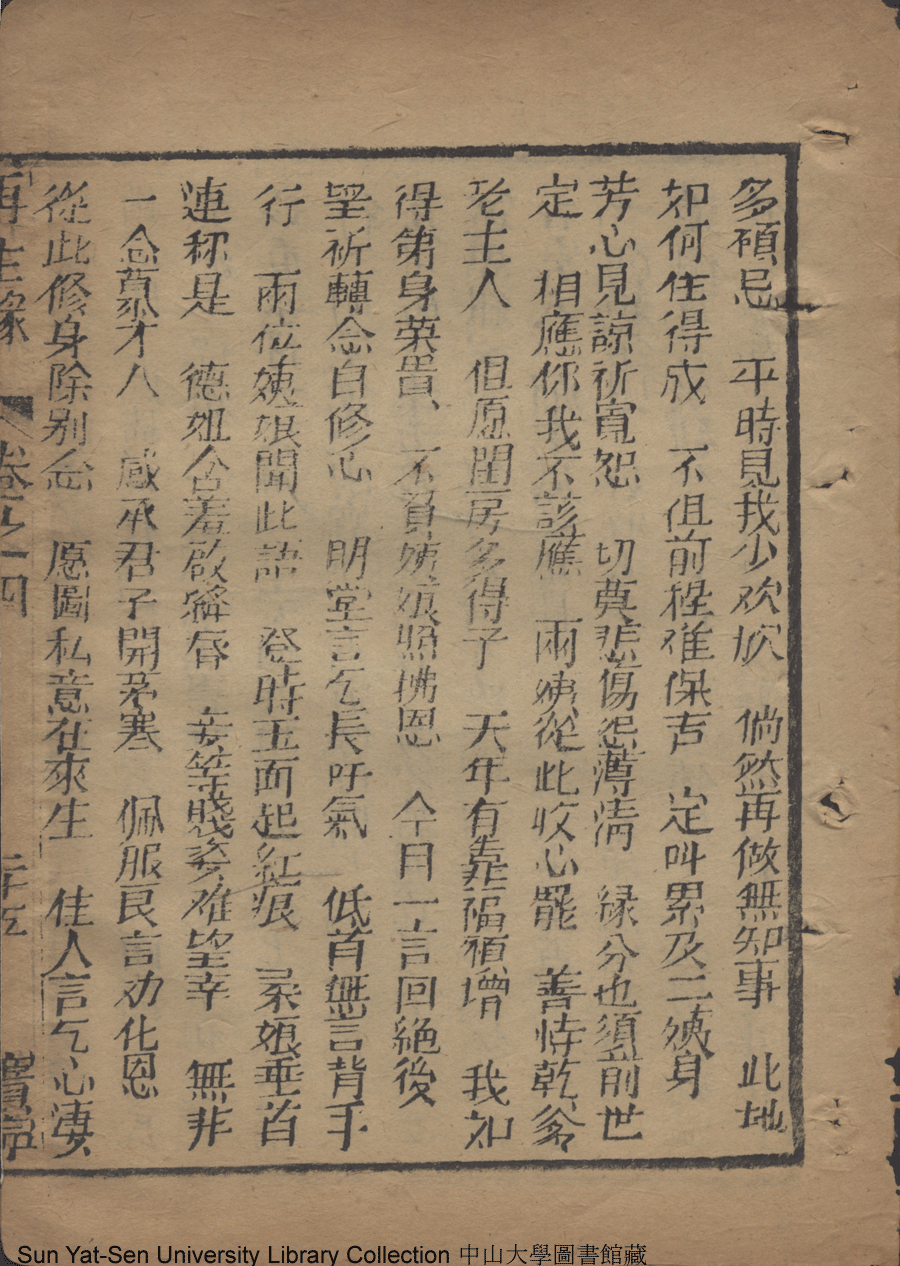 多碩忌　平時見我少欢欣　倘然再做無知事　此地
如何住得成　不但前程难保吉　定叫累及二姨身
芳心見諒祈寬恕　切莫悲傷怨薄情　緣分也須前世
定　相應你我不該應　兩姨從此收心罷　善恃乾爹
老主人　但愿閨房多得子　天年有靠福禎增　我如
得第身荣貴、不負姨娘照拂恩　今日一言回絕後
望祈轉念自修心　明堂言乞長吁氣　低首無言背手
行　兩位姨娘聞此語　登時玉面起紅痕　柔娘垂首
連称是　德姐含羞啟絳唇　妾等賤姿难望幸　無非
一念慕才人　感承君子開茅塞　佩服良言劝化恩
從此修身除別念　愿圖私意在來生　佳人言乞心凄
再生緣　卷之十四　二十五
Sun Yat-Sen University Library Collection 中山大學圖書館藏